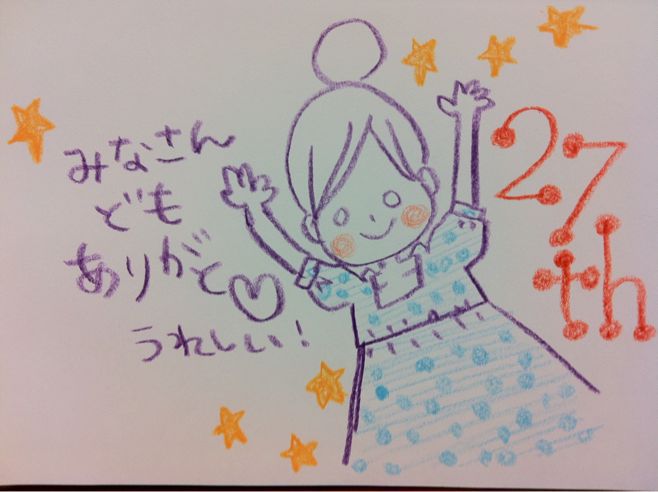 みなさん
ども
ありがと♡
うれしい!
27
th